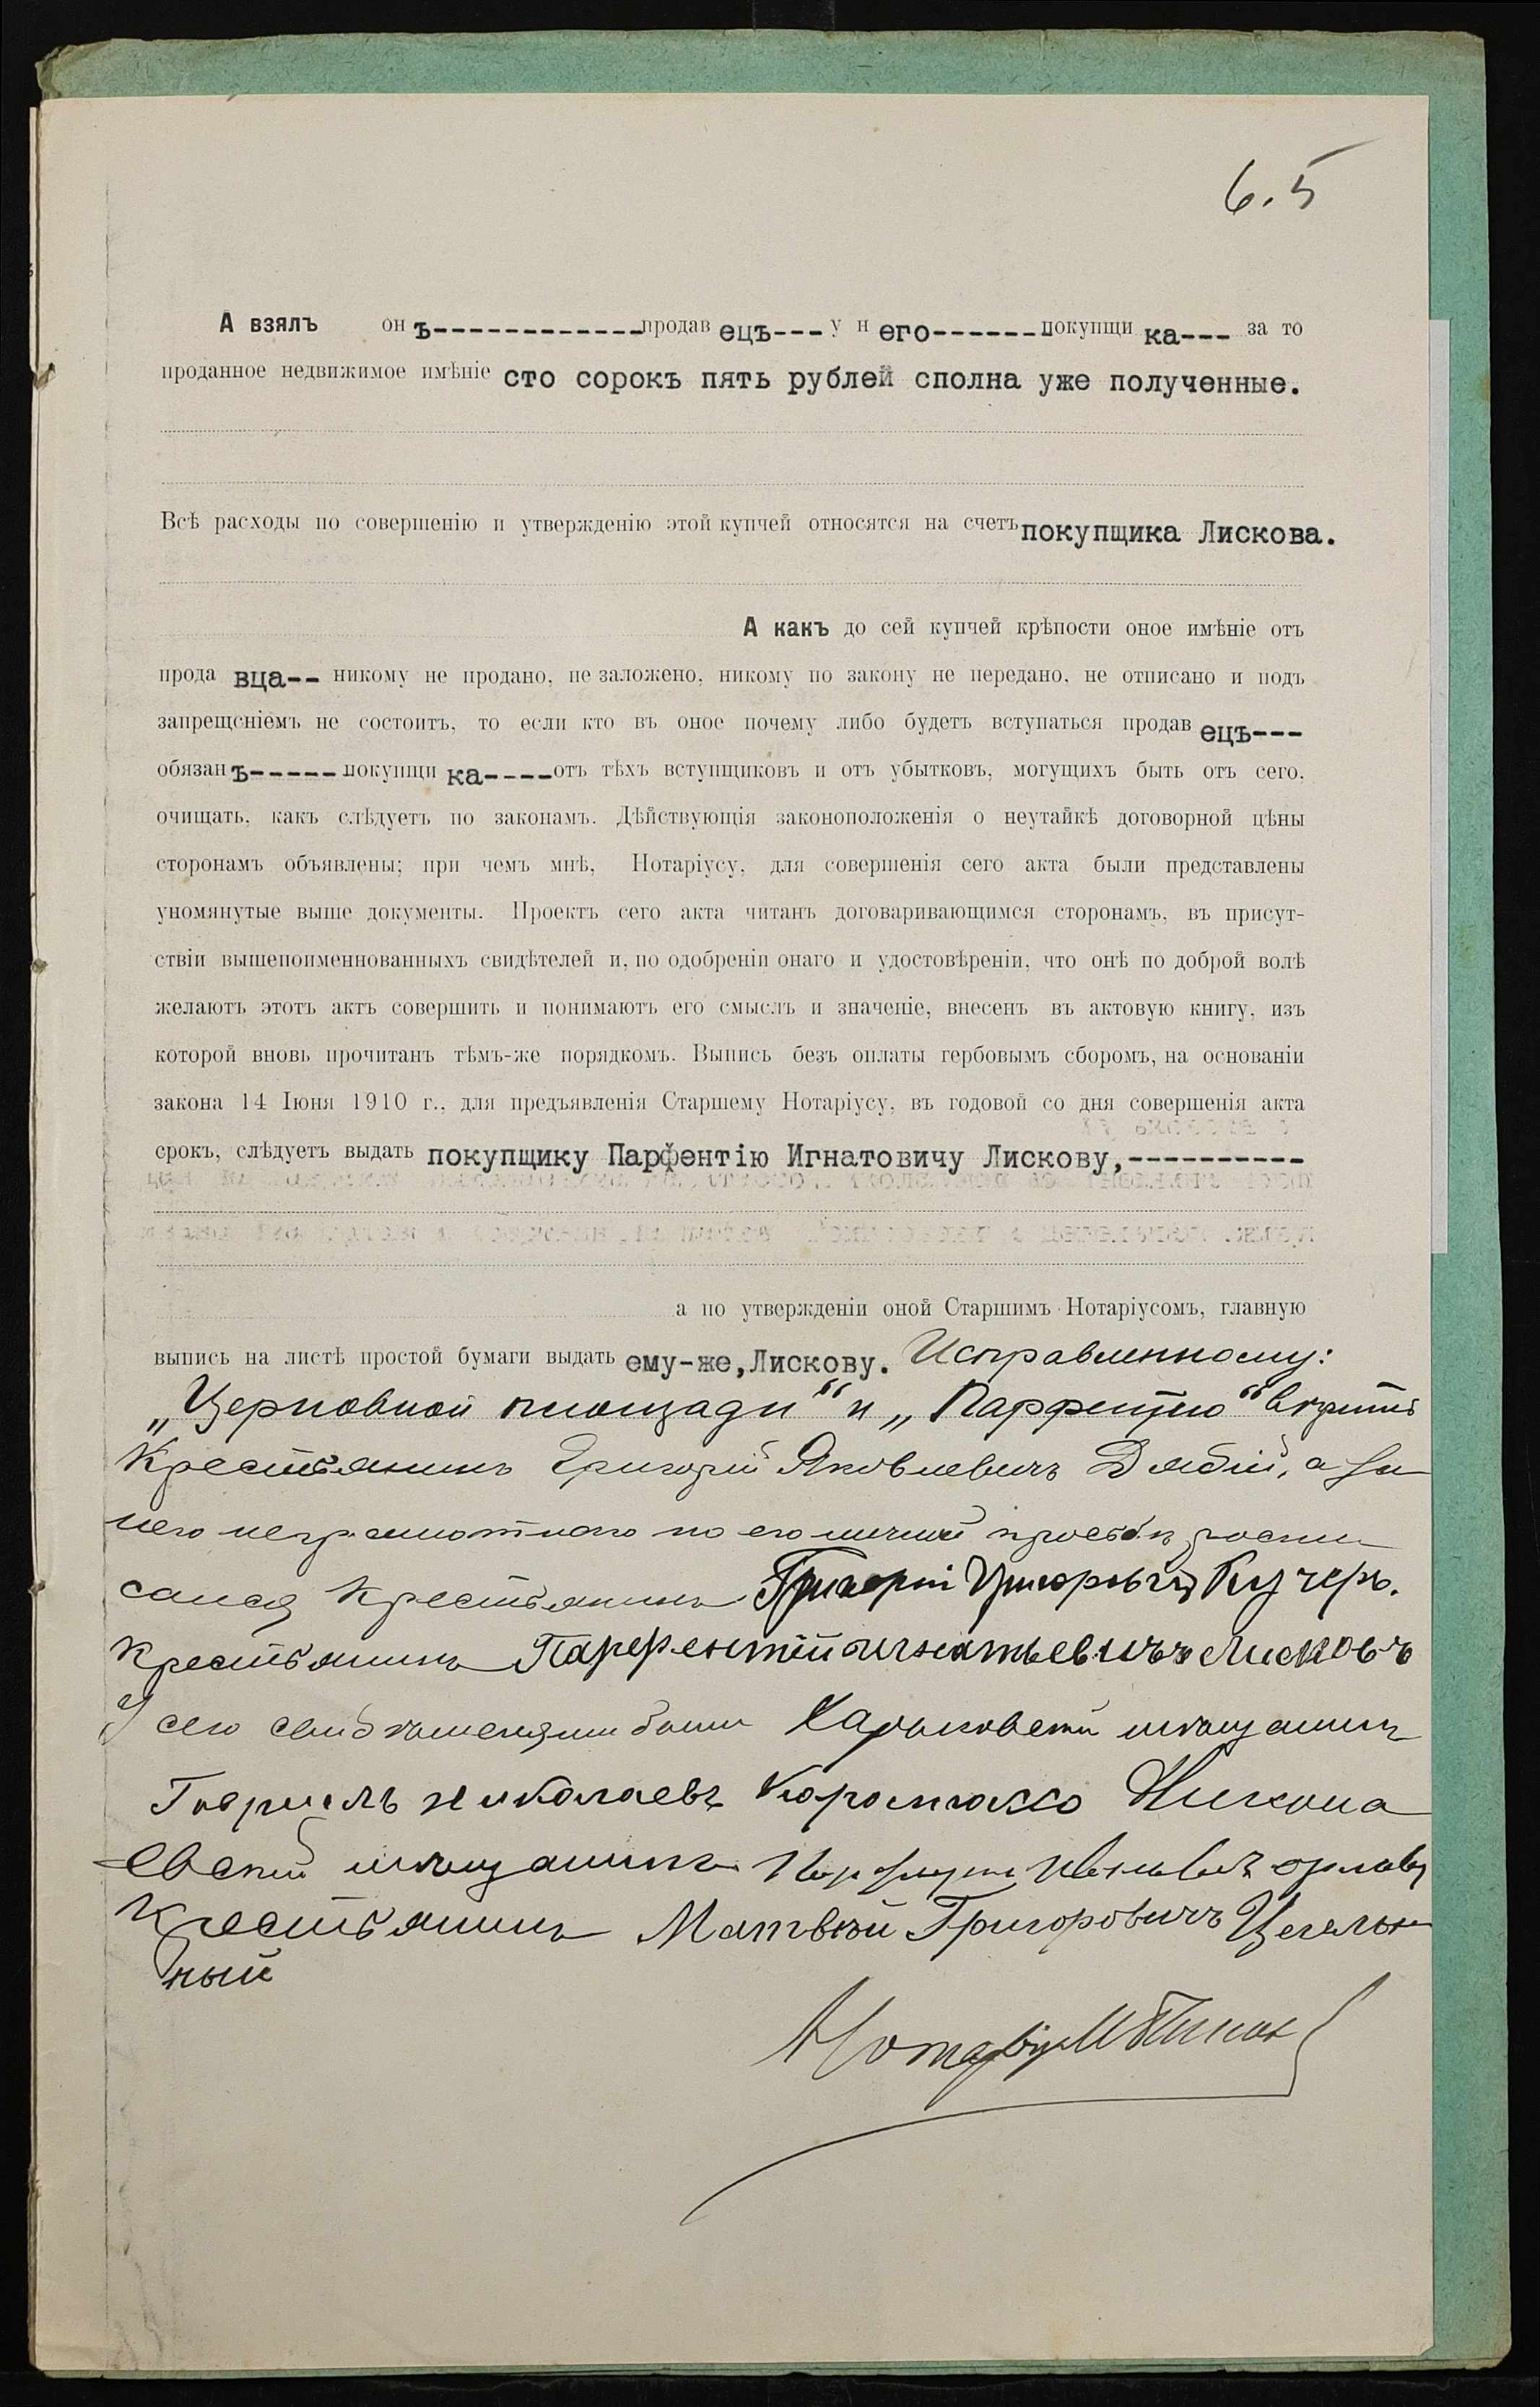 6.5
А взялъ онъ-------------продавецъ--- у него------покупщика--- за то
проданное недвижимое имѣніе сто сорокъ пять рублей сполна уже полученные.
Всѣ расходы по совершенію и утвержденію этой купчей относятся на счетъ покупщика Лискова.
А какъ до сей купчей крѣпости оное имѣніе отъ
продавца-- никому не продано, не заложено, никому по закону не передано, не отписано и подъ
запрещеніемъ не состоитъ, то если кто въ оное почему либо будетъ вступаться продавецъ---
обязанъ-----покупщика----отъ тѣхъ вступщиковъ и отъ убытковъ, могущихъ быть отъ сего,
очищать, какъ слѣдуетъ по законамъ. Дѣйствующія законоположенія о неутайкѣ договорной цѣны
сторонамъ объявлены; при чемъ мнѣ, Нотаріусу, для совершенія сего акта были представлены
упомянутые выше документы. Проектъ сего акта читанъ договаривающимся сторонамъ, въ присут-
ствіи вышепоименнованныхъ свидѣтелей и, по одобреніи онаго и удостовѣреніи, что онѣ по доброй волѣ
желаютъ этотъ актъ совершить и понимаютъ его смыслъ и значеніе, внесенъ въ актовую книгу, изъ
которой вновь прочитанъ тѣмъ-же порядкомъ. Выпись безъ оплаты гербовымъ сборомъ, на основаніи
закона 14 Іюня 1910 г., для предъявленія Старшему Нотаріусу, въ годовой со дня совершенія акта
срокъ, слѣдуетъ выдать покупщику Парфентію Игнатовичу Лискову,----------
а по утвержденіи оной Старшимъ Нотаріусомъ, главную
выпись на листѣ простой бумаги выдать ему-же, Лискову. Исправленному:
„Церковной площади“ и „Парфентію“ вѣрить
Крестьянинъ Григорій Яковлевичъ Дябій, а за
него неграмотнаго по его личной просьбѣ роспи
сался крестьянинъ Григорій Григоровичъ Кучеръ.
Крестьянинъ Парфентій Игнатьевичъ Лисковъ
У сего свидѣтелями были Харьковскій мѣщанинъ
Гавріилъ Николаевъ Никола
евскій мѣщанинъ
Крестьянинъ Матвѣй Григоровичъ Цегель
ный
Нотаріусъ